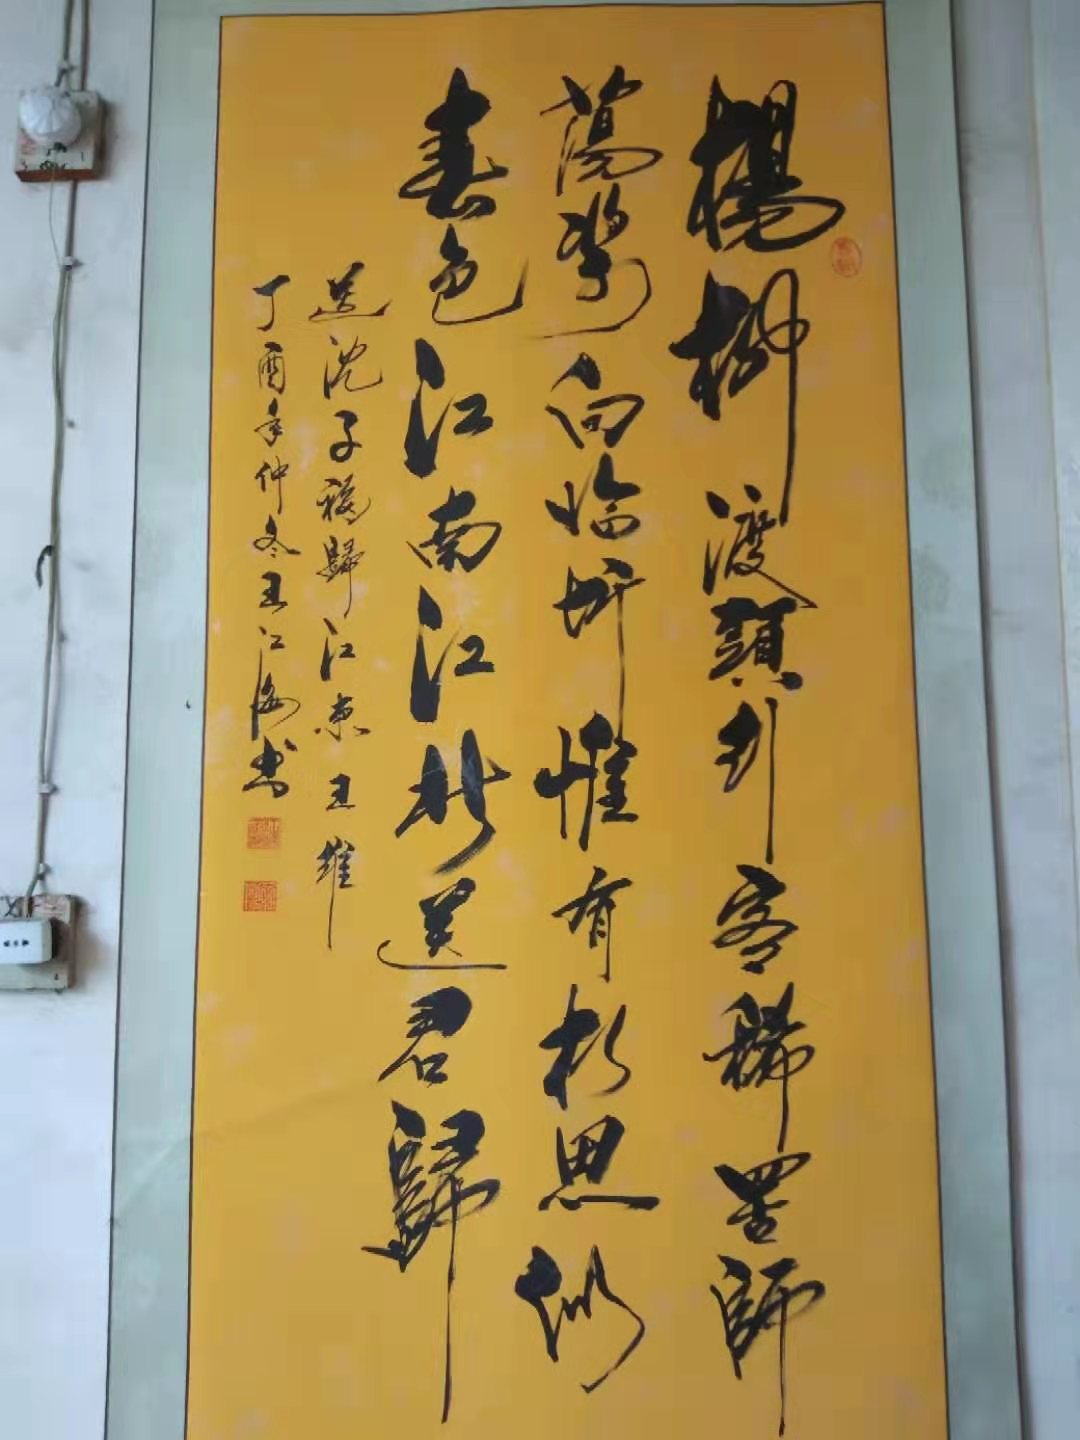 楊柳渡頭行客稀罟師
蕩槳向臨圻惟有相思似
春色江南江北送君歸
送沈子福歸江東王維
丁酉年仲冬王江海书